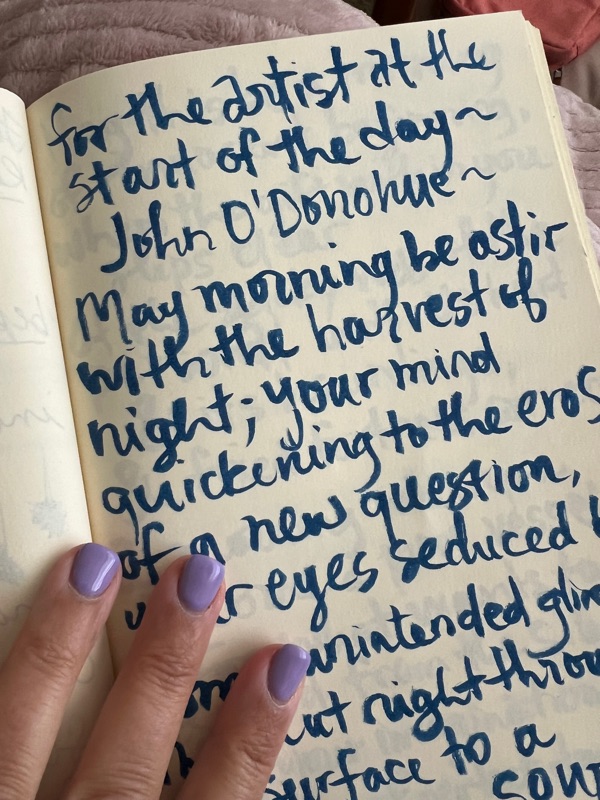 for the artist at the
start of the day~
John O'Donohue~
May morning be astir
with the harvest of
night; your mind
quickening to the eros
of a new question,
eyes seduced
unintended
right
surface to a